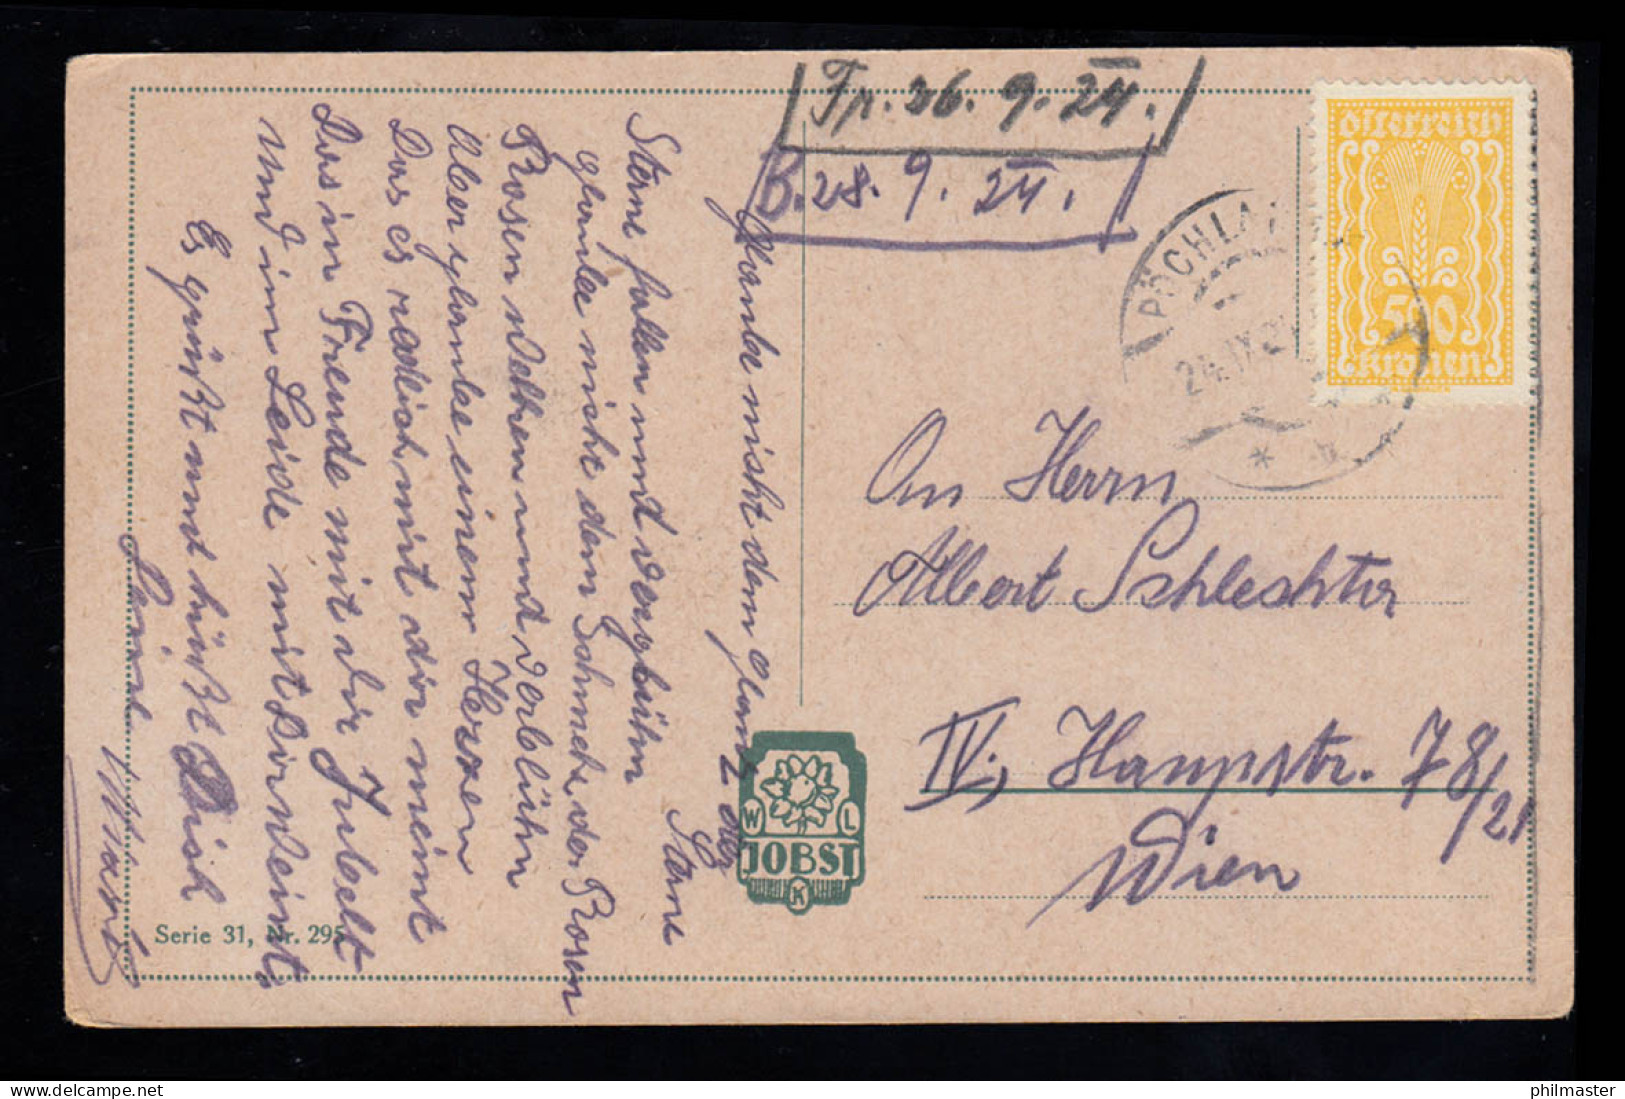 Fr. 26. 9. 24.
B. 28. 9. 24.
PÖCHLA
24.IX.24
Österreich
500
Kronen
Glaube nicht dem Glanz der
Sterne
Sterne fallen und verglühn
glaube nicht dem Schmelz der Rosen
Rosen welken und verblühn
Aber glaube einem Herzen
Das es redlich mit dir meint
Das in Freude mit dir Jubelt
und im Leide mit dir weint.
Es grüßt und küßt Dich
Dein
An Herrn
Albert Schlechter
IV., Hauptstr. 78/21
Wien
W L
JOBST
K
Serie 31, Nr. 295
philmaster